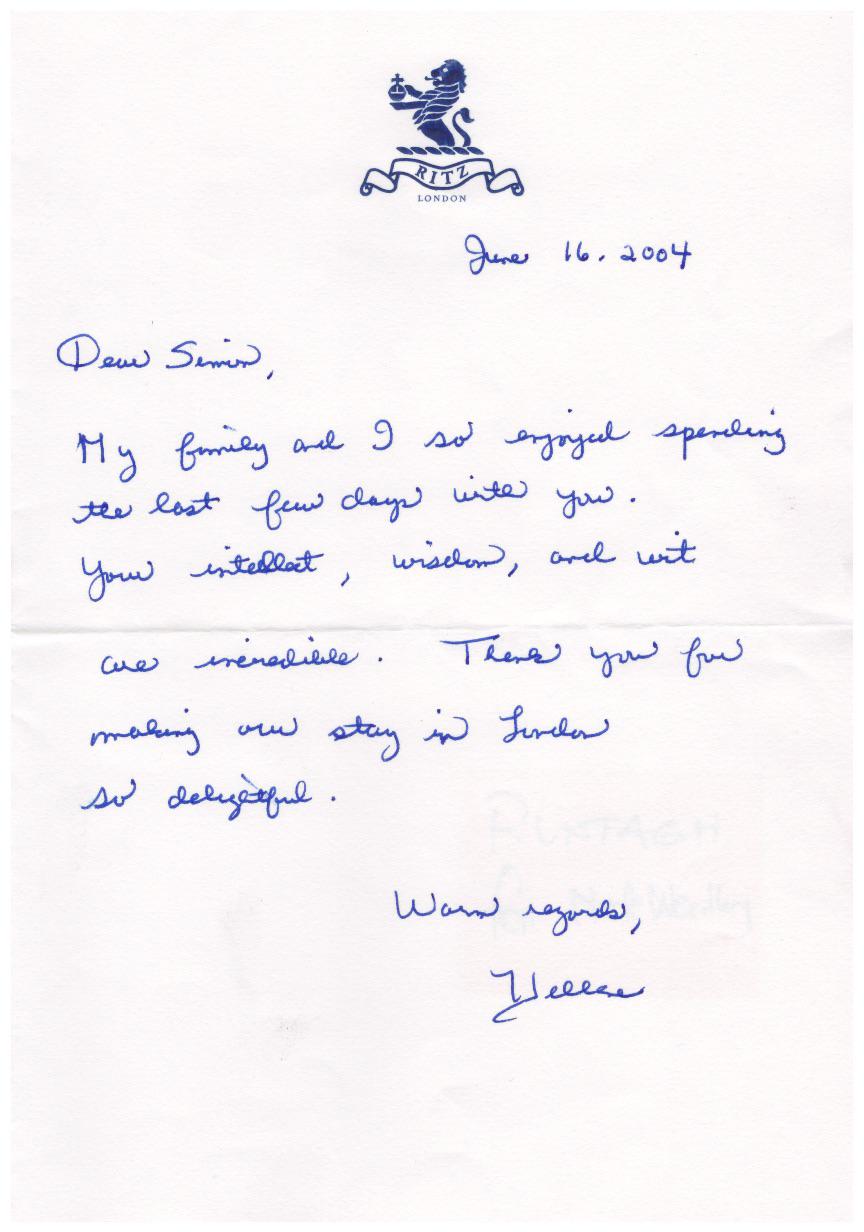 RITZ
LONDON
June 16. 2004
Dear Simon,
My family and I so enjoyed spending
the last few days with you.
Your intellect, wisdom, and wit
are incredible. Thank you for
making our stay in London
so delightful.
Warm regards,